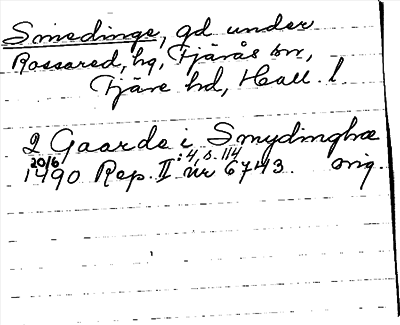 Smedinge, gd under
Rossared, hg, Fjärås sn,
Fjäre hd, Hall. l
2 Gaarde i Smydinghæ
20/6 1490 Rep. II :4, s. 114 nr 6743. orig.